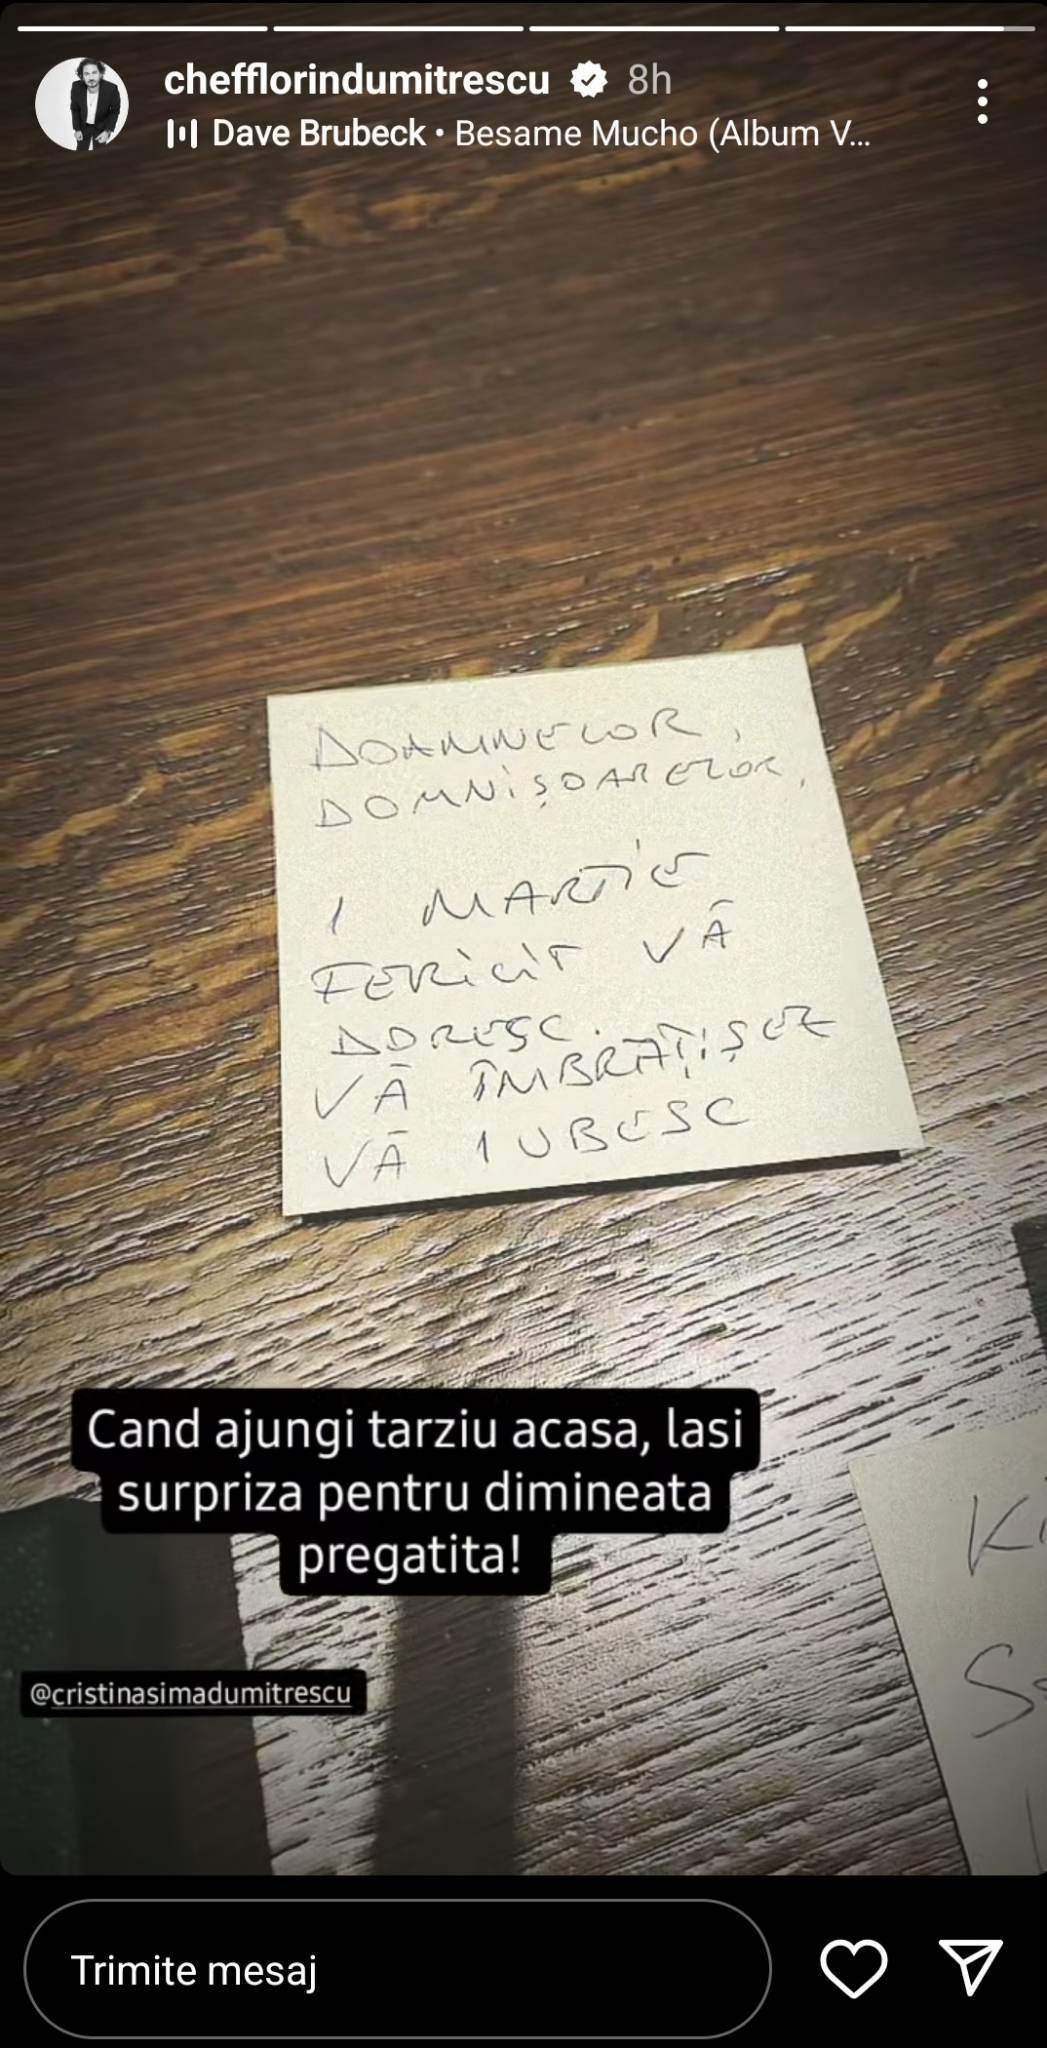 chefflorindumitrescu 8h
Dave Brubeck • Besame Mucho (Album V...
DOAMNELOR,
DOMNIȘOARELOR,
1 MARTIE
FERICIT VĂ
DORESC.
VĂ ÎMBRĂȚIȘEZ
VĂ IUBESC
Cand ajungi tarziu acasa, lasi
surpriza pentru dimineata
pregatita!
@cristinasimadumitrescu
Trimite mesaj